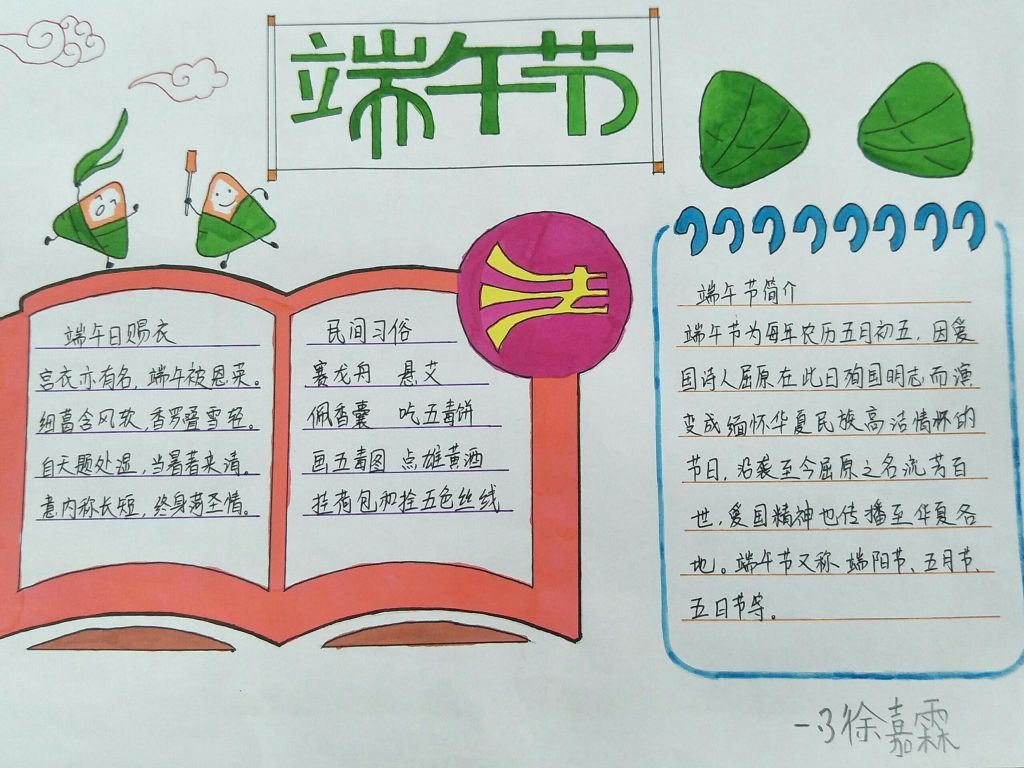 端午节
端午日赐衣
宫衣亦有名，端午被恩荣。
细葛含风软，香罗叠雪轻。
自天题处湿，当暑著来清。
意内称长短，终身荷圣情。
民间习俗
赛龙舟 悬艾
佩香囊 吃五毒饼
画五毒图 点雄黄酒
挂荷包和拴五色丝线
端午节简介
端午节为每年农历五月初五，因爱
国诗人屈原在此日殉国明志而演
变成缅怀华夏民族高洁情怀的
节日，沿袭至今屈原之名流芳百
世，爱国精神也传播至华夏各
地。端午节又称 端阳节、五月节、
五日节等。
徐嘉霖